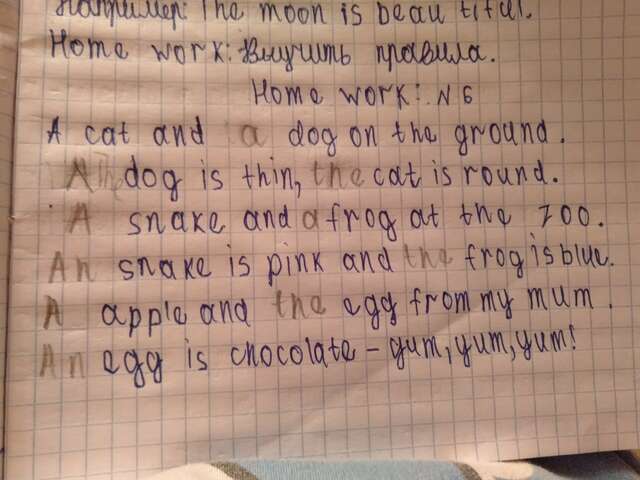 Например: The moon is beau tiful.
Home work: Выучить правила.
Home work: N 6
A cat and a dog on the ground.
A dog is thin, the cat is round.
A snake and a frog at the zoo.
An snake is pink and the frog is blue.
A apple and the egg from my mum.
An egg is chocolate - yum, yum, yum!